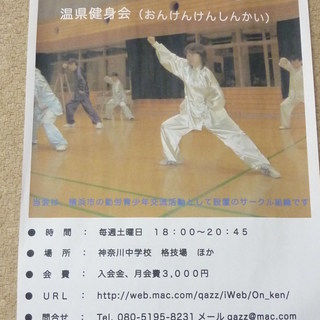 温県健身会(おんけんけんしんかい)
当会は、横浜市の勤労青少年交流活動として設置のサークル組織です
● 時 間 : 毎週土曜日 18:00〜20:45
● 場 所 : 神奈川中学校 格技場 ほか
● 会 費 : 入会金、月会費3,000円
● URL : http://web.mac.com/qazz/iWeb/On_ken/
● 問合せ : Tel. 080-5195-8231 メール qazz@mac.com